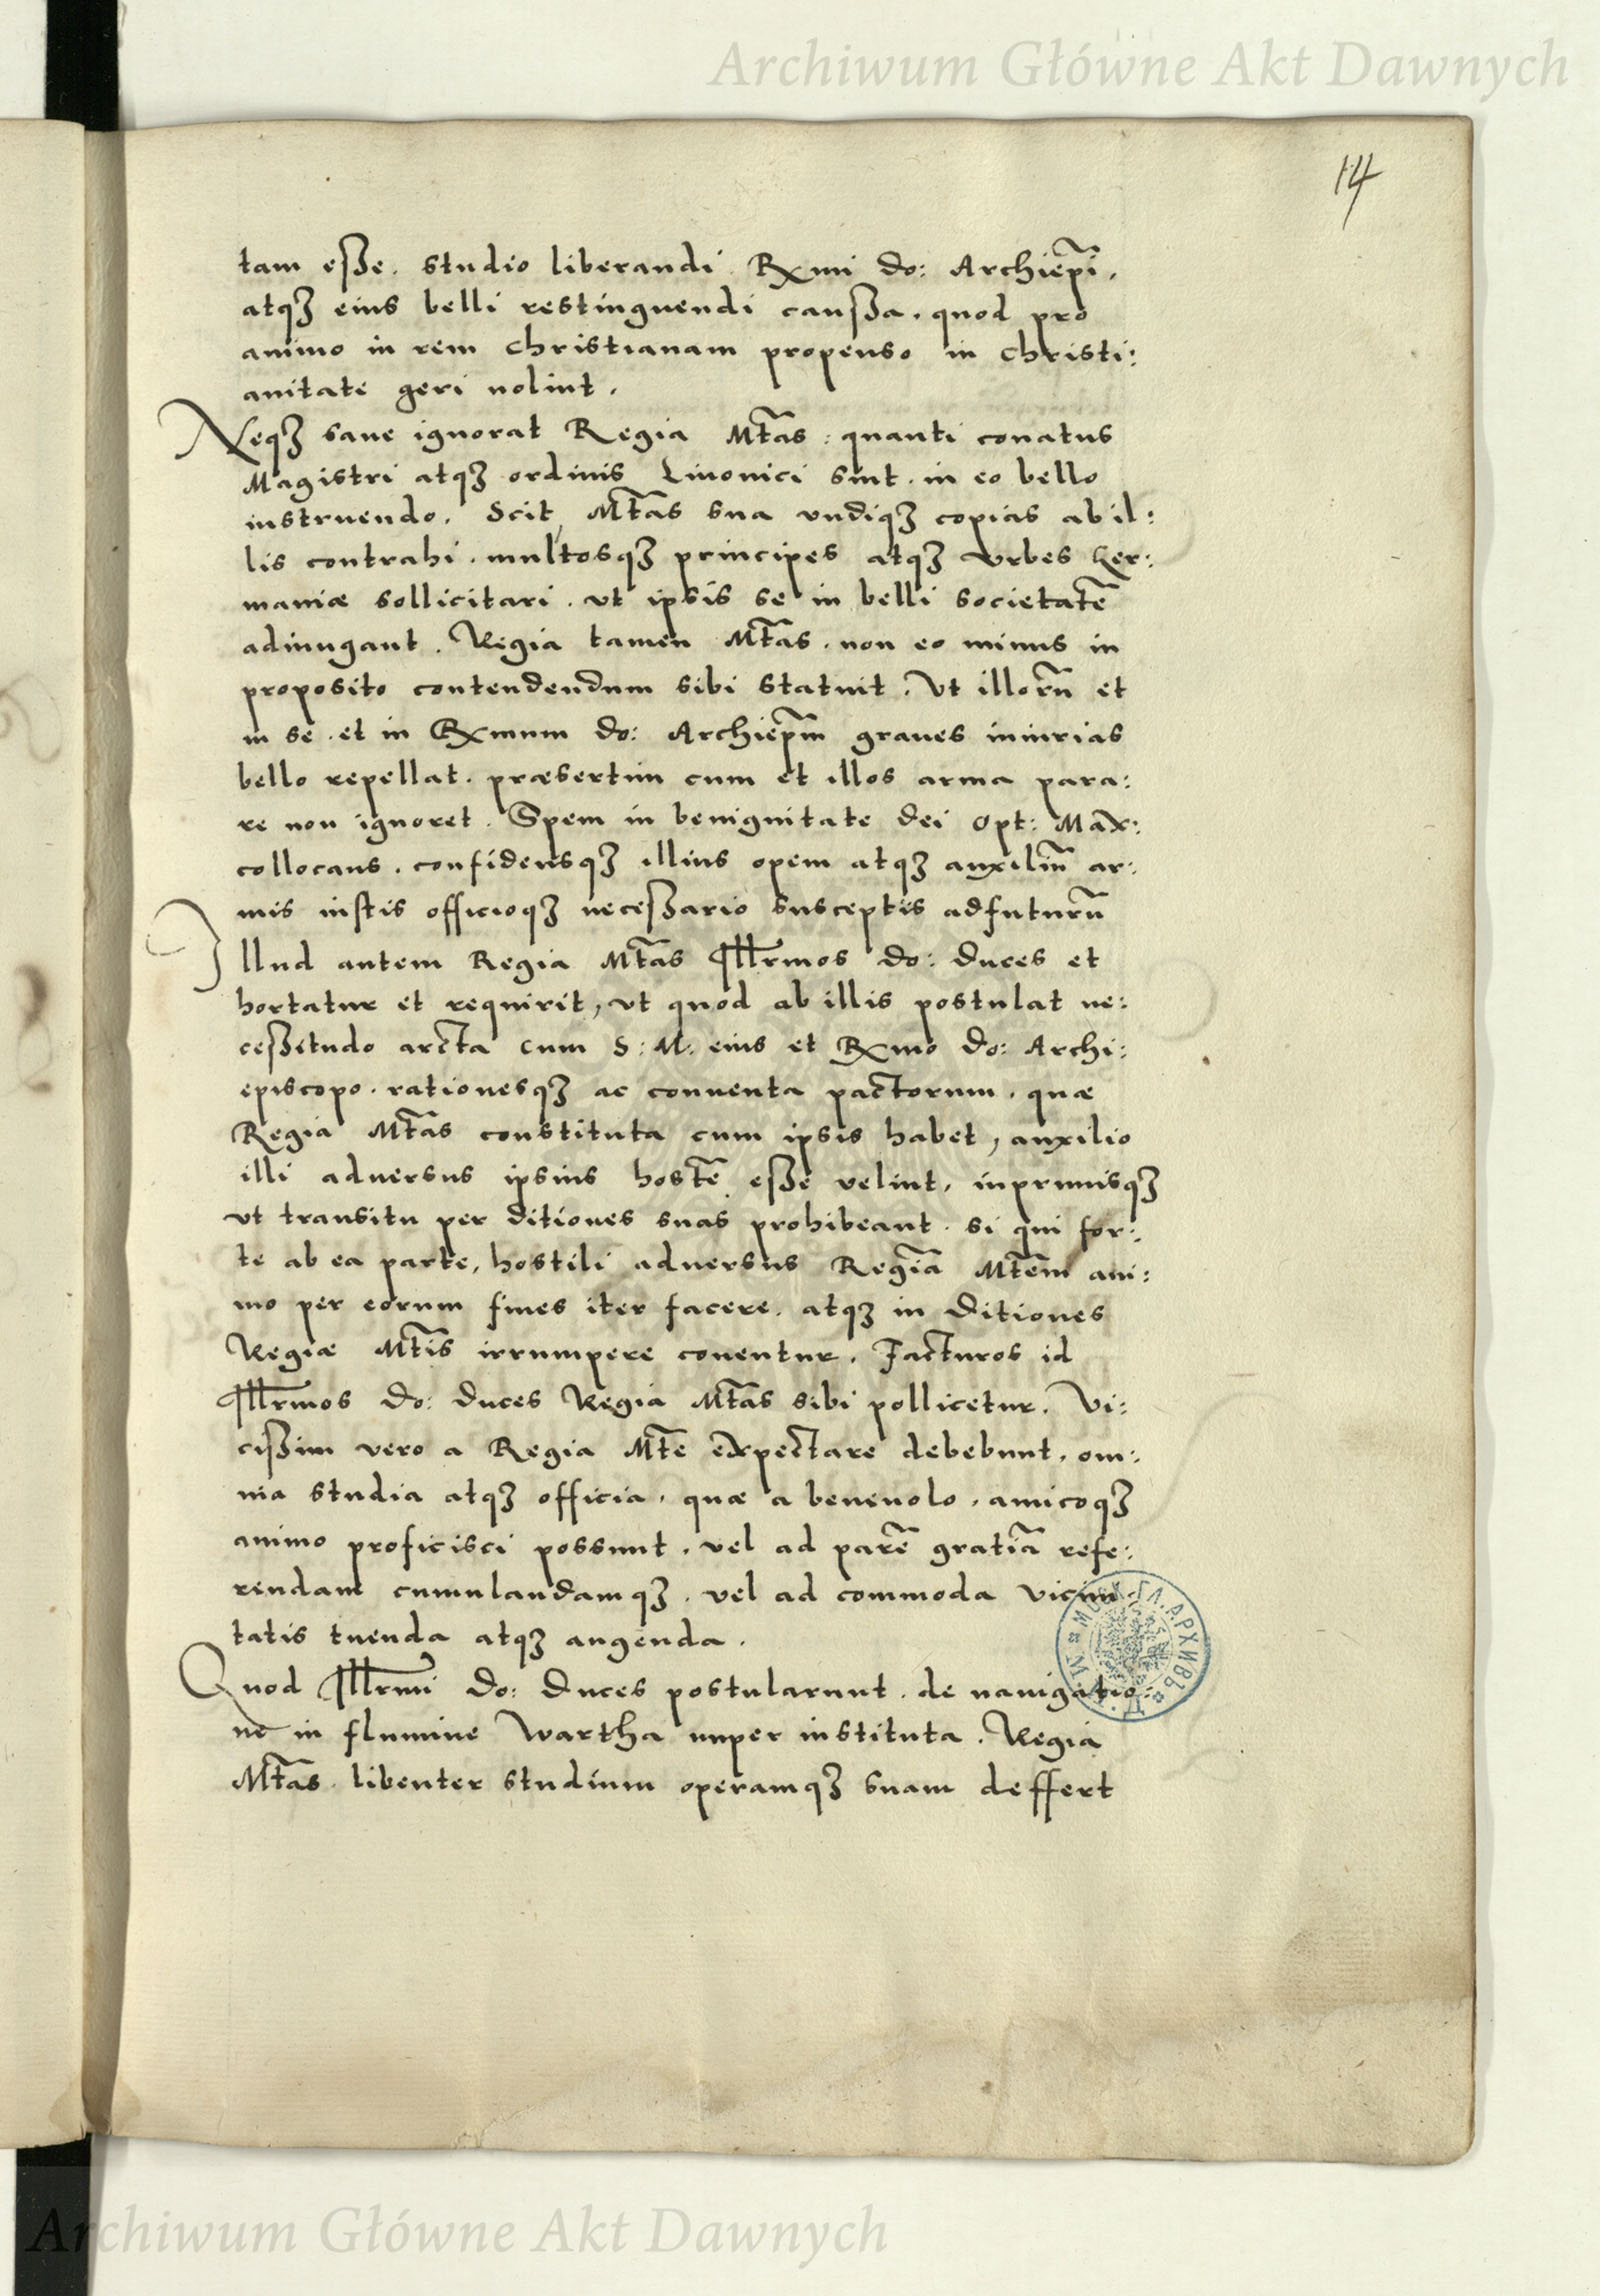 Archiwum Główne Akt Dawnych
14
tam esse. studio liberandi Rxmi do: Archiepĩ.
atqʒ eius belli restinguendi caussa. quod pro
animo in rem christianam propenso in christi:
anitate geri nolint.
Neqʒ sane ignorat Regia Mtas: quanti conatus
Magistri atqʒ ordinis Liuonici sint. in eo bello
instruendo. Scit, Mtas sua undiqʒ copias ab il:
lis contrahi. multosqʒ principes atqʒ vrbes Ger:
maniæ sollicitari. vt ipsis se in belli societatẽ
adiungant. Regia tamen Mtas. non eo minus in
proposito contendendum sibi statuit. Vt illorũ et
in se. et in Rxmum do: Archiepm̃ graues iniurias
bello repellat. præsertim cum et illos arma para:
re non ignoret. Spem in benignitate dei opt: Max:
collocans. confidensqʒ illius opem atqʒ auxiliũ ar:
mis iustis officioqʒ necessario susceptis adfuturũ
Illud autem Regia Mtas Illrmos do: duces et
hortatur et requirit, vt quod ab illis postulat ne:
cessitudo arcta cum S: M: eius et Rxmo do: Archi:
episcopo. rationesqʒ ac conuenta pactorum. quæ
Regia Mtas constituta cum ipsis habet, auxilio
illi aduersus ipsius hostẽ esse velint, inprimisqʒ
vt transitu per ditiones suas prohibeant. si qui for:
te ab ea parte, hostili aduersus Regiã Mtem ani:
mo per eorum fines iter facere. atqʒ in ditiones
Regiæ Mtis irrumpere conentur. Facturos id
Illrmos do: duces Regia Mtas sibi pollicetur. Vi:
cissim vero a Regia Mte expectare debebunt. om:
nia studia atqʒ officia. quæ a beneuolo. amicoqʒ
animo proficisci possunt. vel ad parẽ gratiã refe:
rendam cumulandamqʒ. vel ad commoda vicini
tatis tuenda atqʒ augenda.
Quod Illrmi do: duces postularunt. de nauigatio:
ne in flumine Wartha nuper instituta. Regia
Mtas. libenter studium operamqʒ suam deffert
Archiwum Główne Akt Dawnych